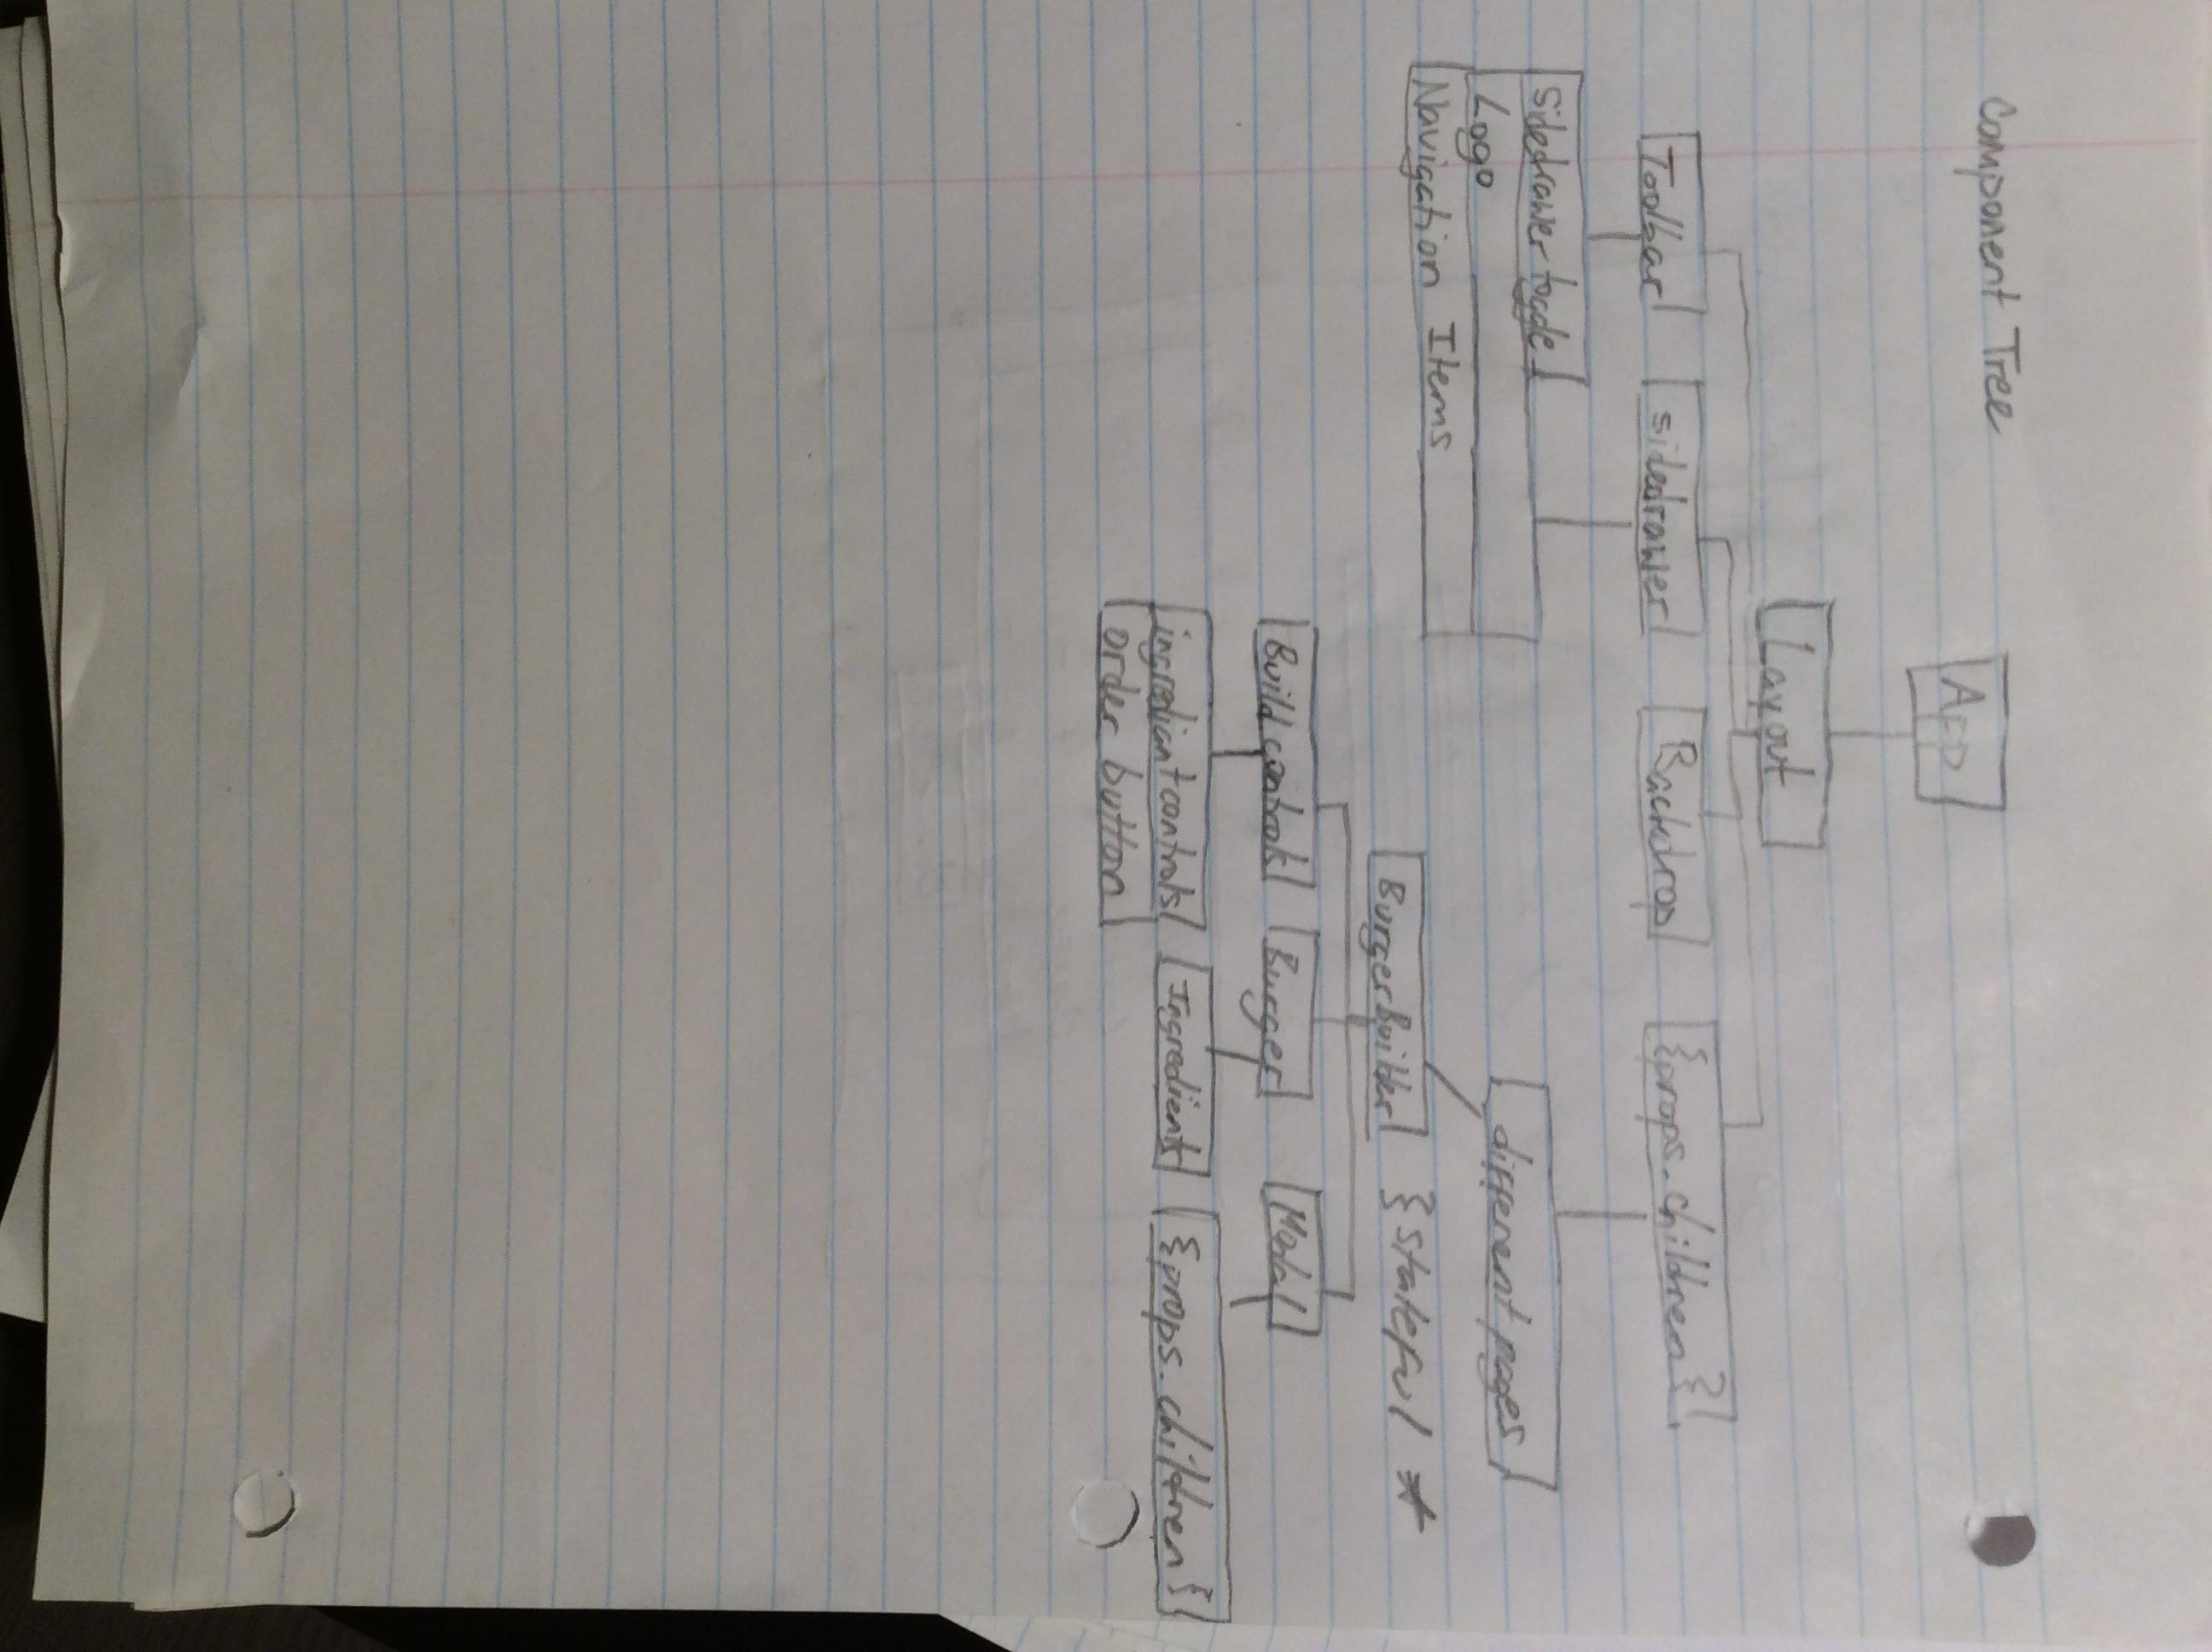 Component Tree
App
Layout
Toolbar
sidedrawer
Backdrop
{props.children}
Sidedrawer togde
Logo
Navigation Items
different pages
BurgerBuilder {stateful *
Build controls
Burger
Modal
ingrediant controls
order button
Ingredients
{props.children}